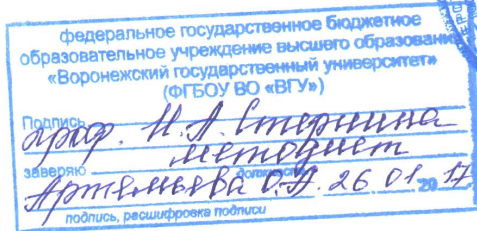 федеральное государственное бюджетное
образовательное учреждение высшего образования
«Воронежский государственный университет»
(ФГБОУ ВО «ВГУ»)
Подпись
проф. И.А. Стернина
методист
заверяю должность
Артемьева О.А. 26 01 2017
подпись, расшифровка подписи